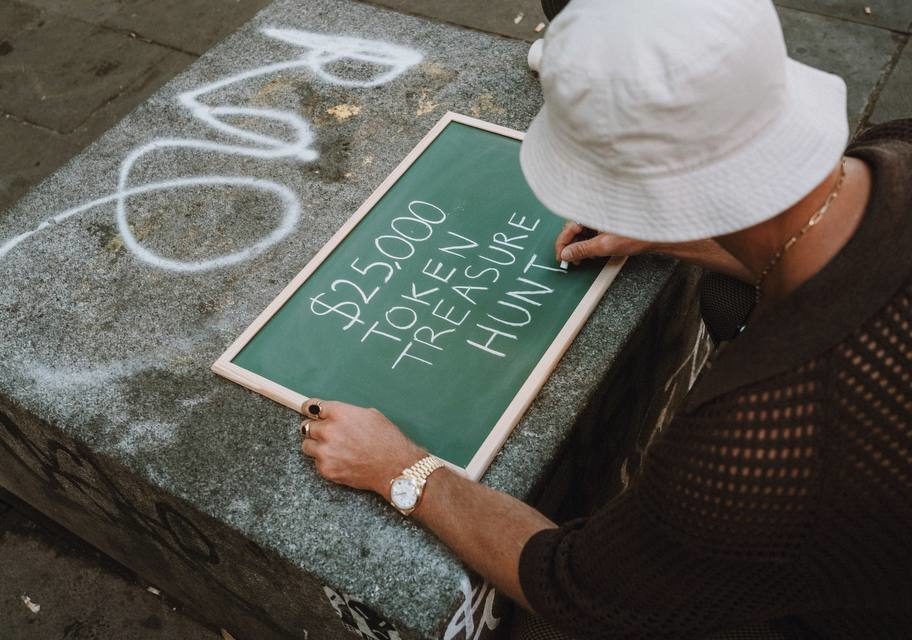 $25,000
TOKEN
TREASURE
HUNT